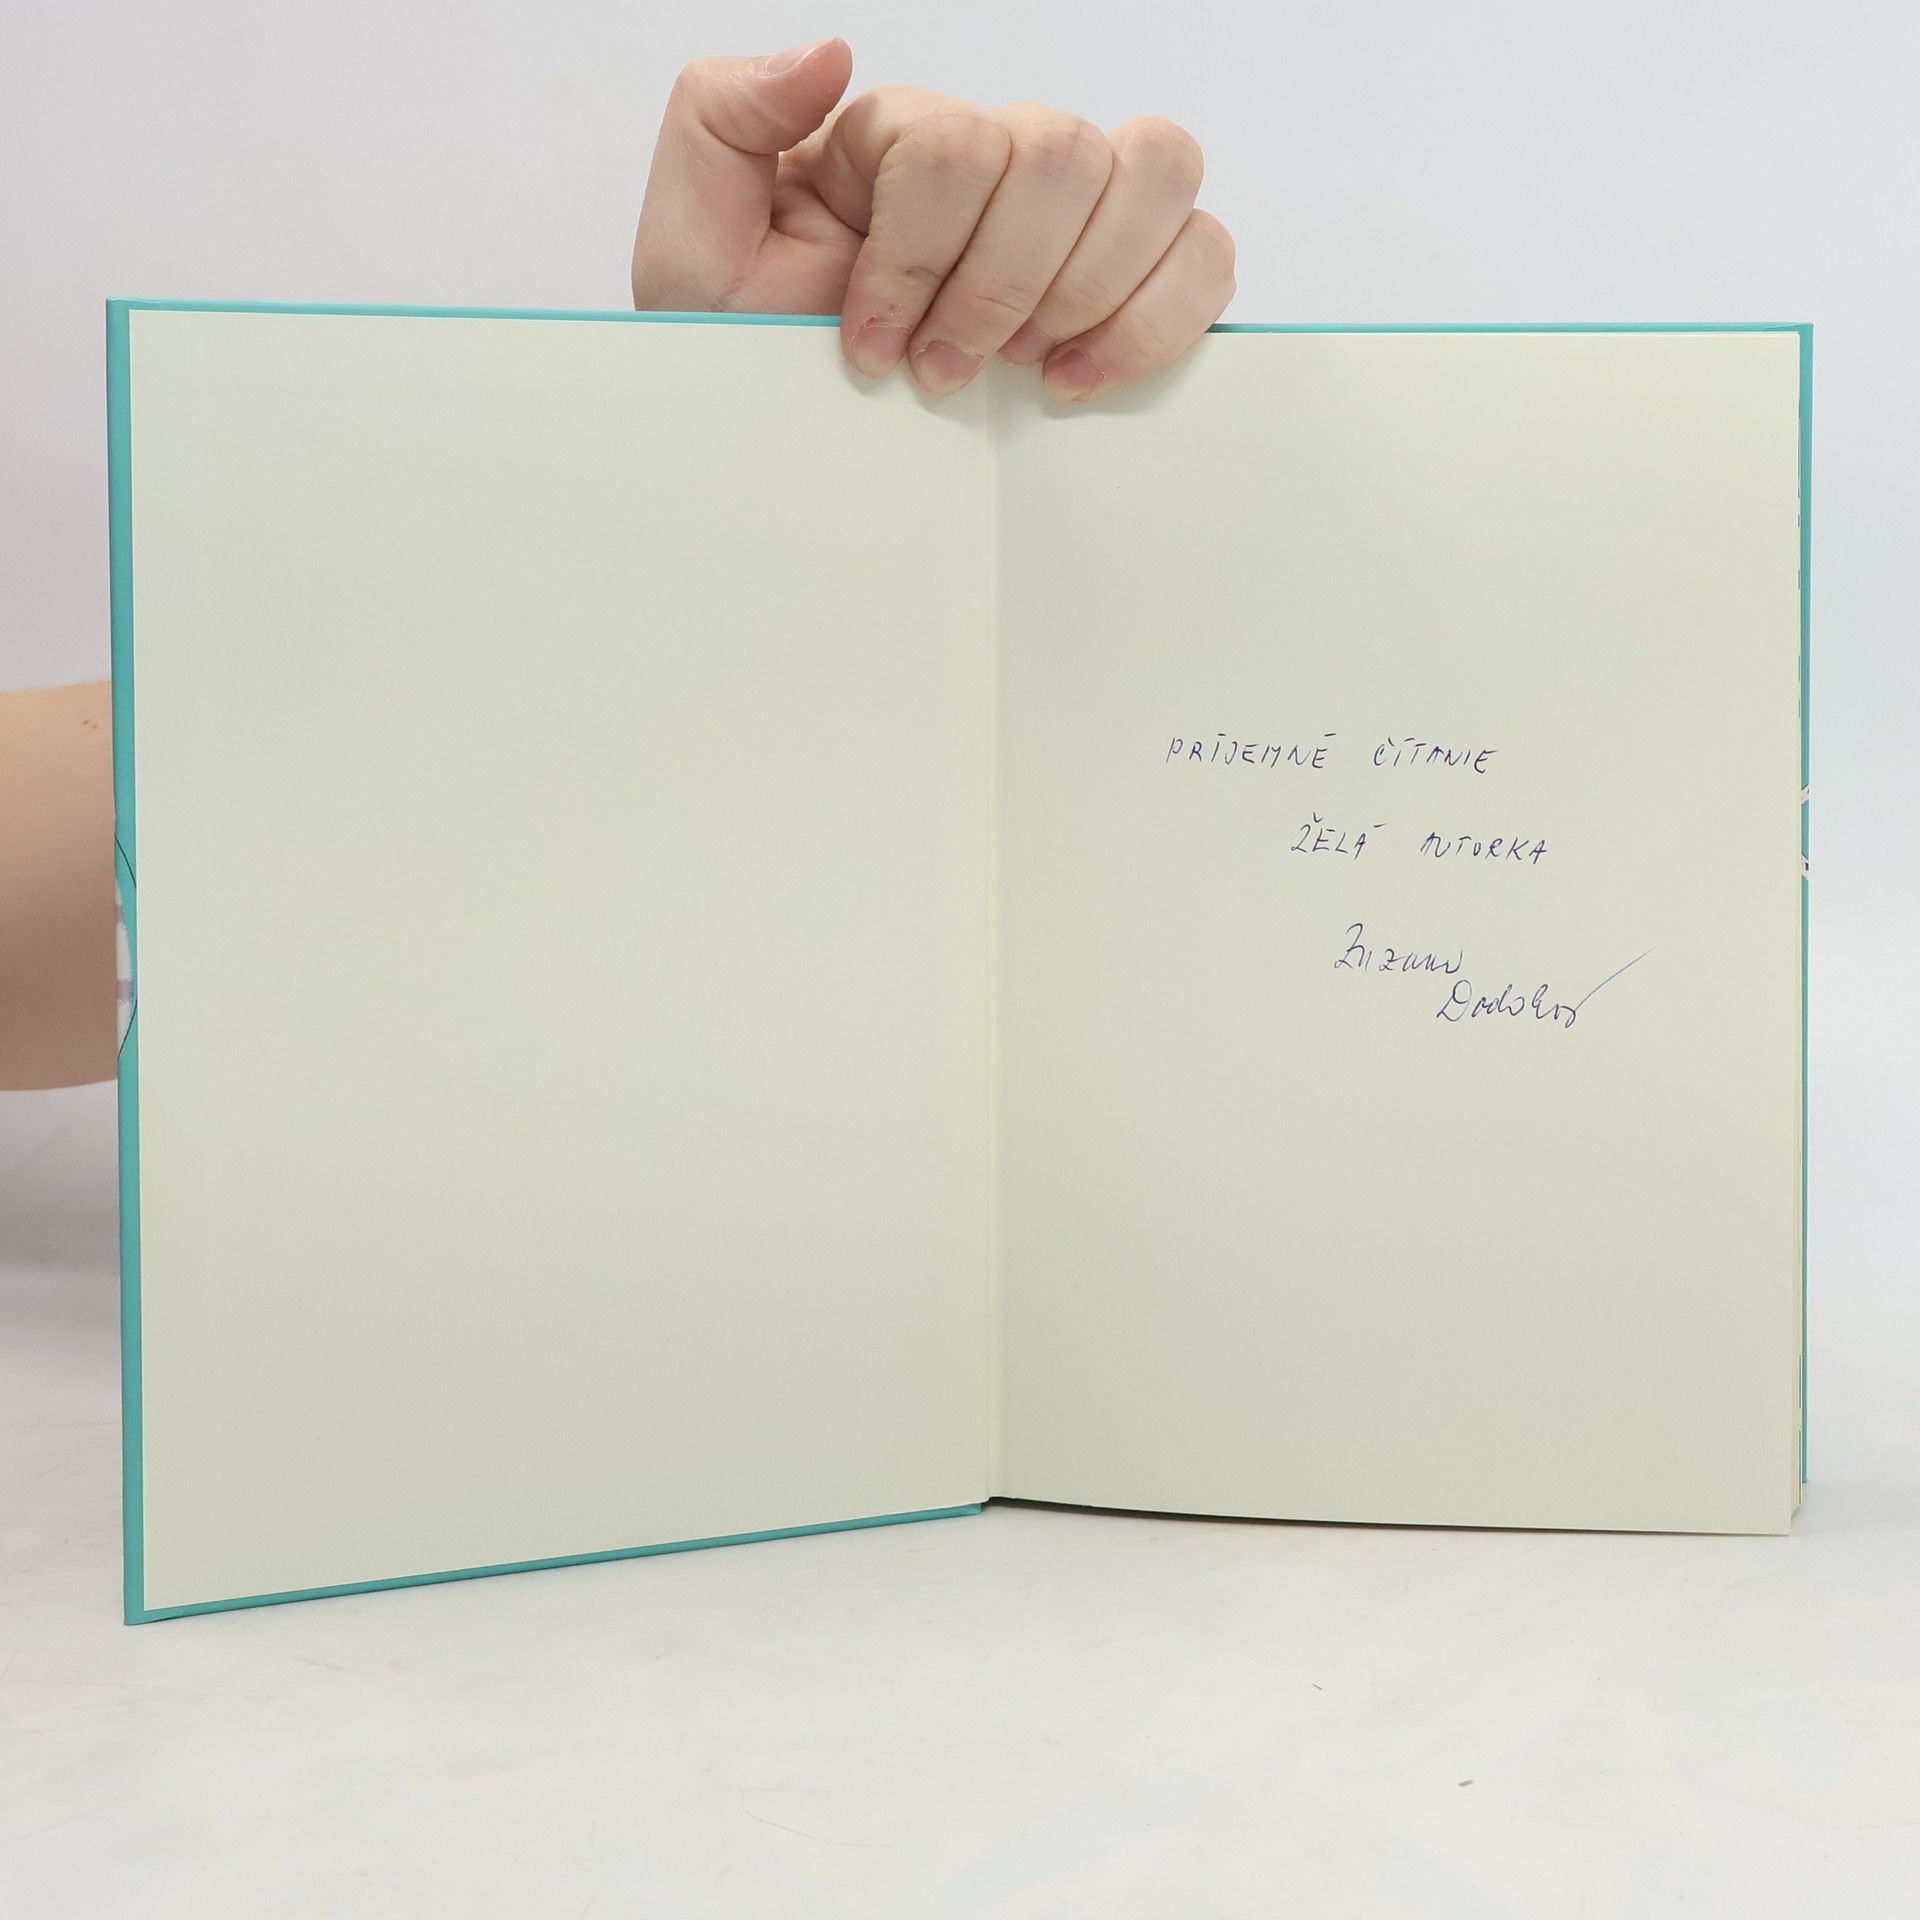 PRÍJEMNÉ ČÍTANIE
ŽELÁ AUTORKA
Zuzana